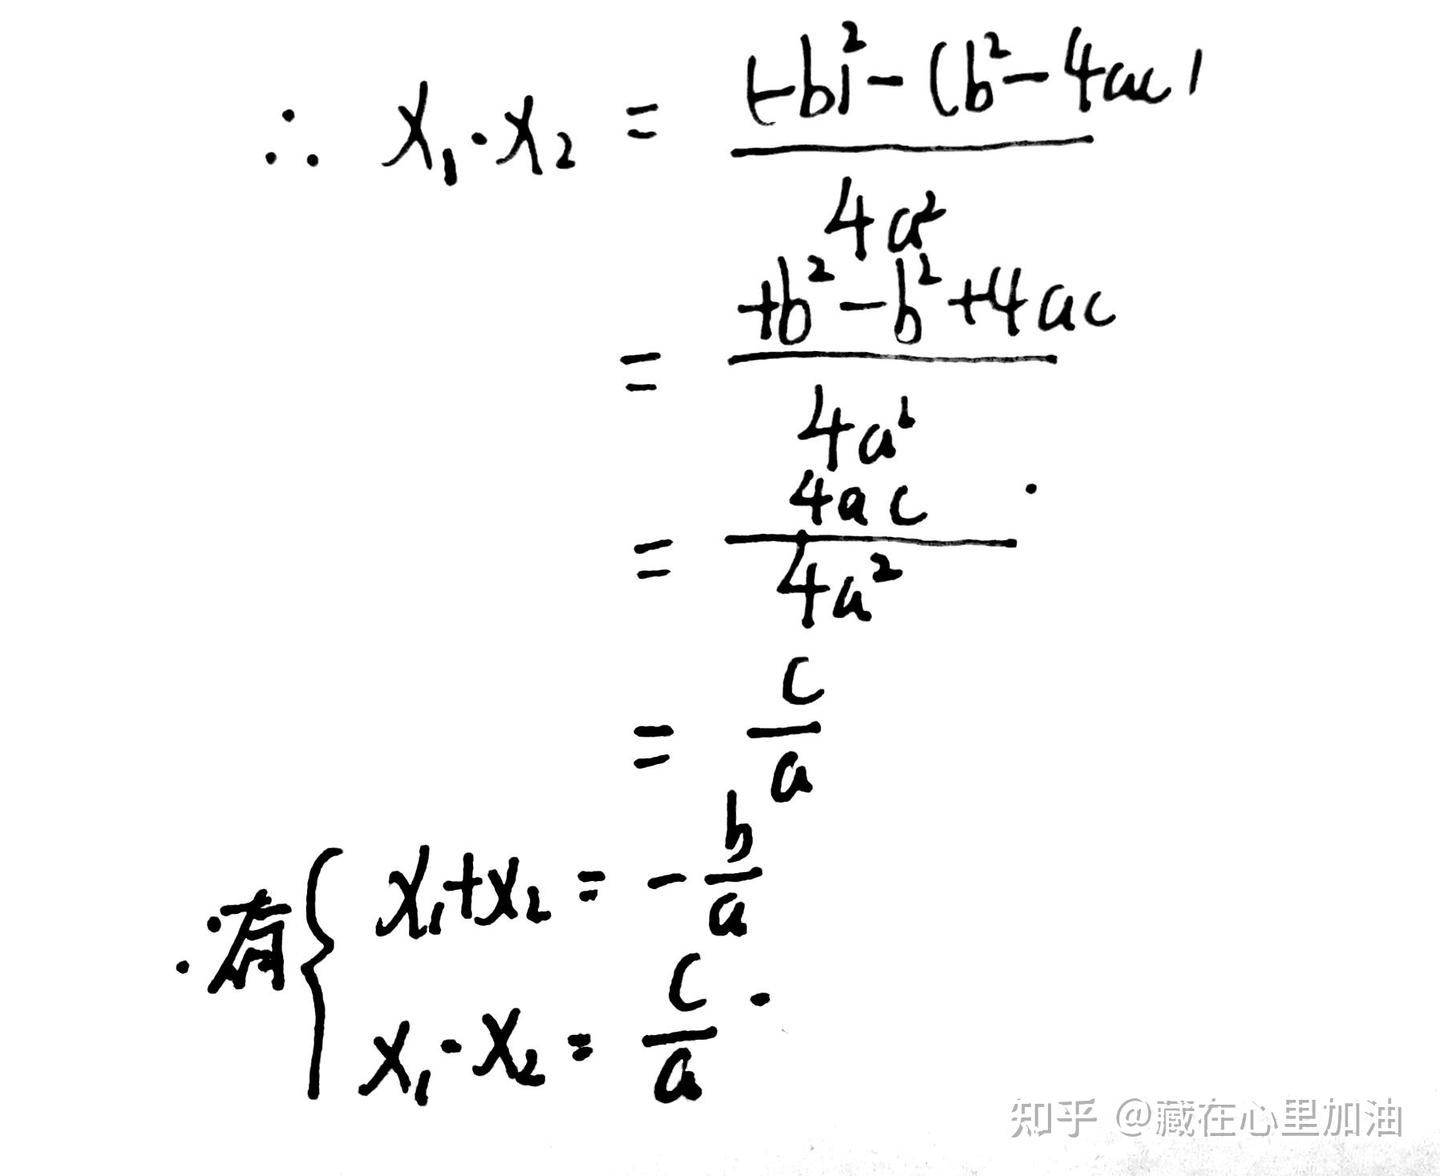 ∴ x₁·x₂ = ((-b)² - (b² - 4ac)) / 4a²
= (+b² - b² + 4ac) / 4a²
= 4ac / 4a²
= c / a
∴有{ x₁+x₂ = - b/a
x₁·x₂ = c/a .
知乎 @藏在心里加油